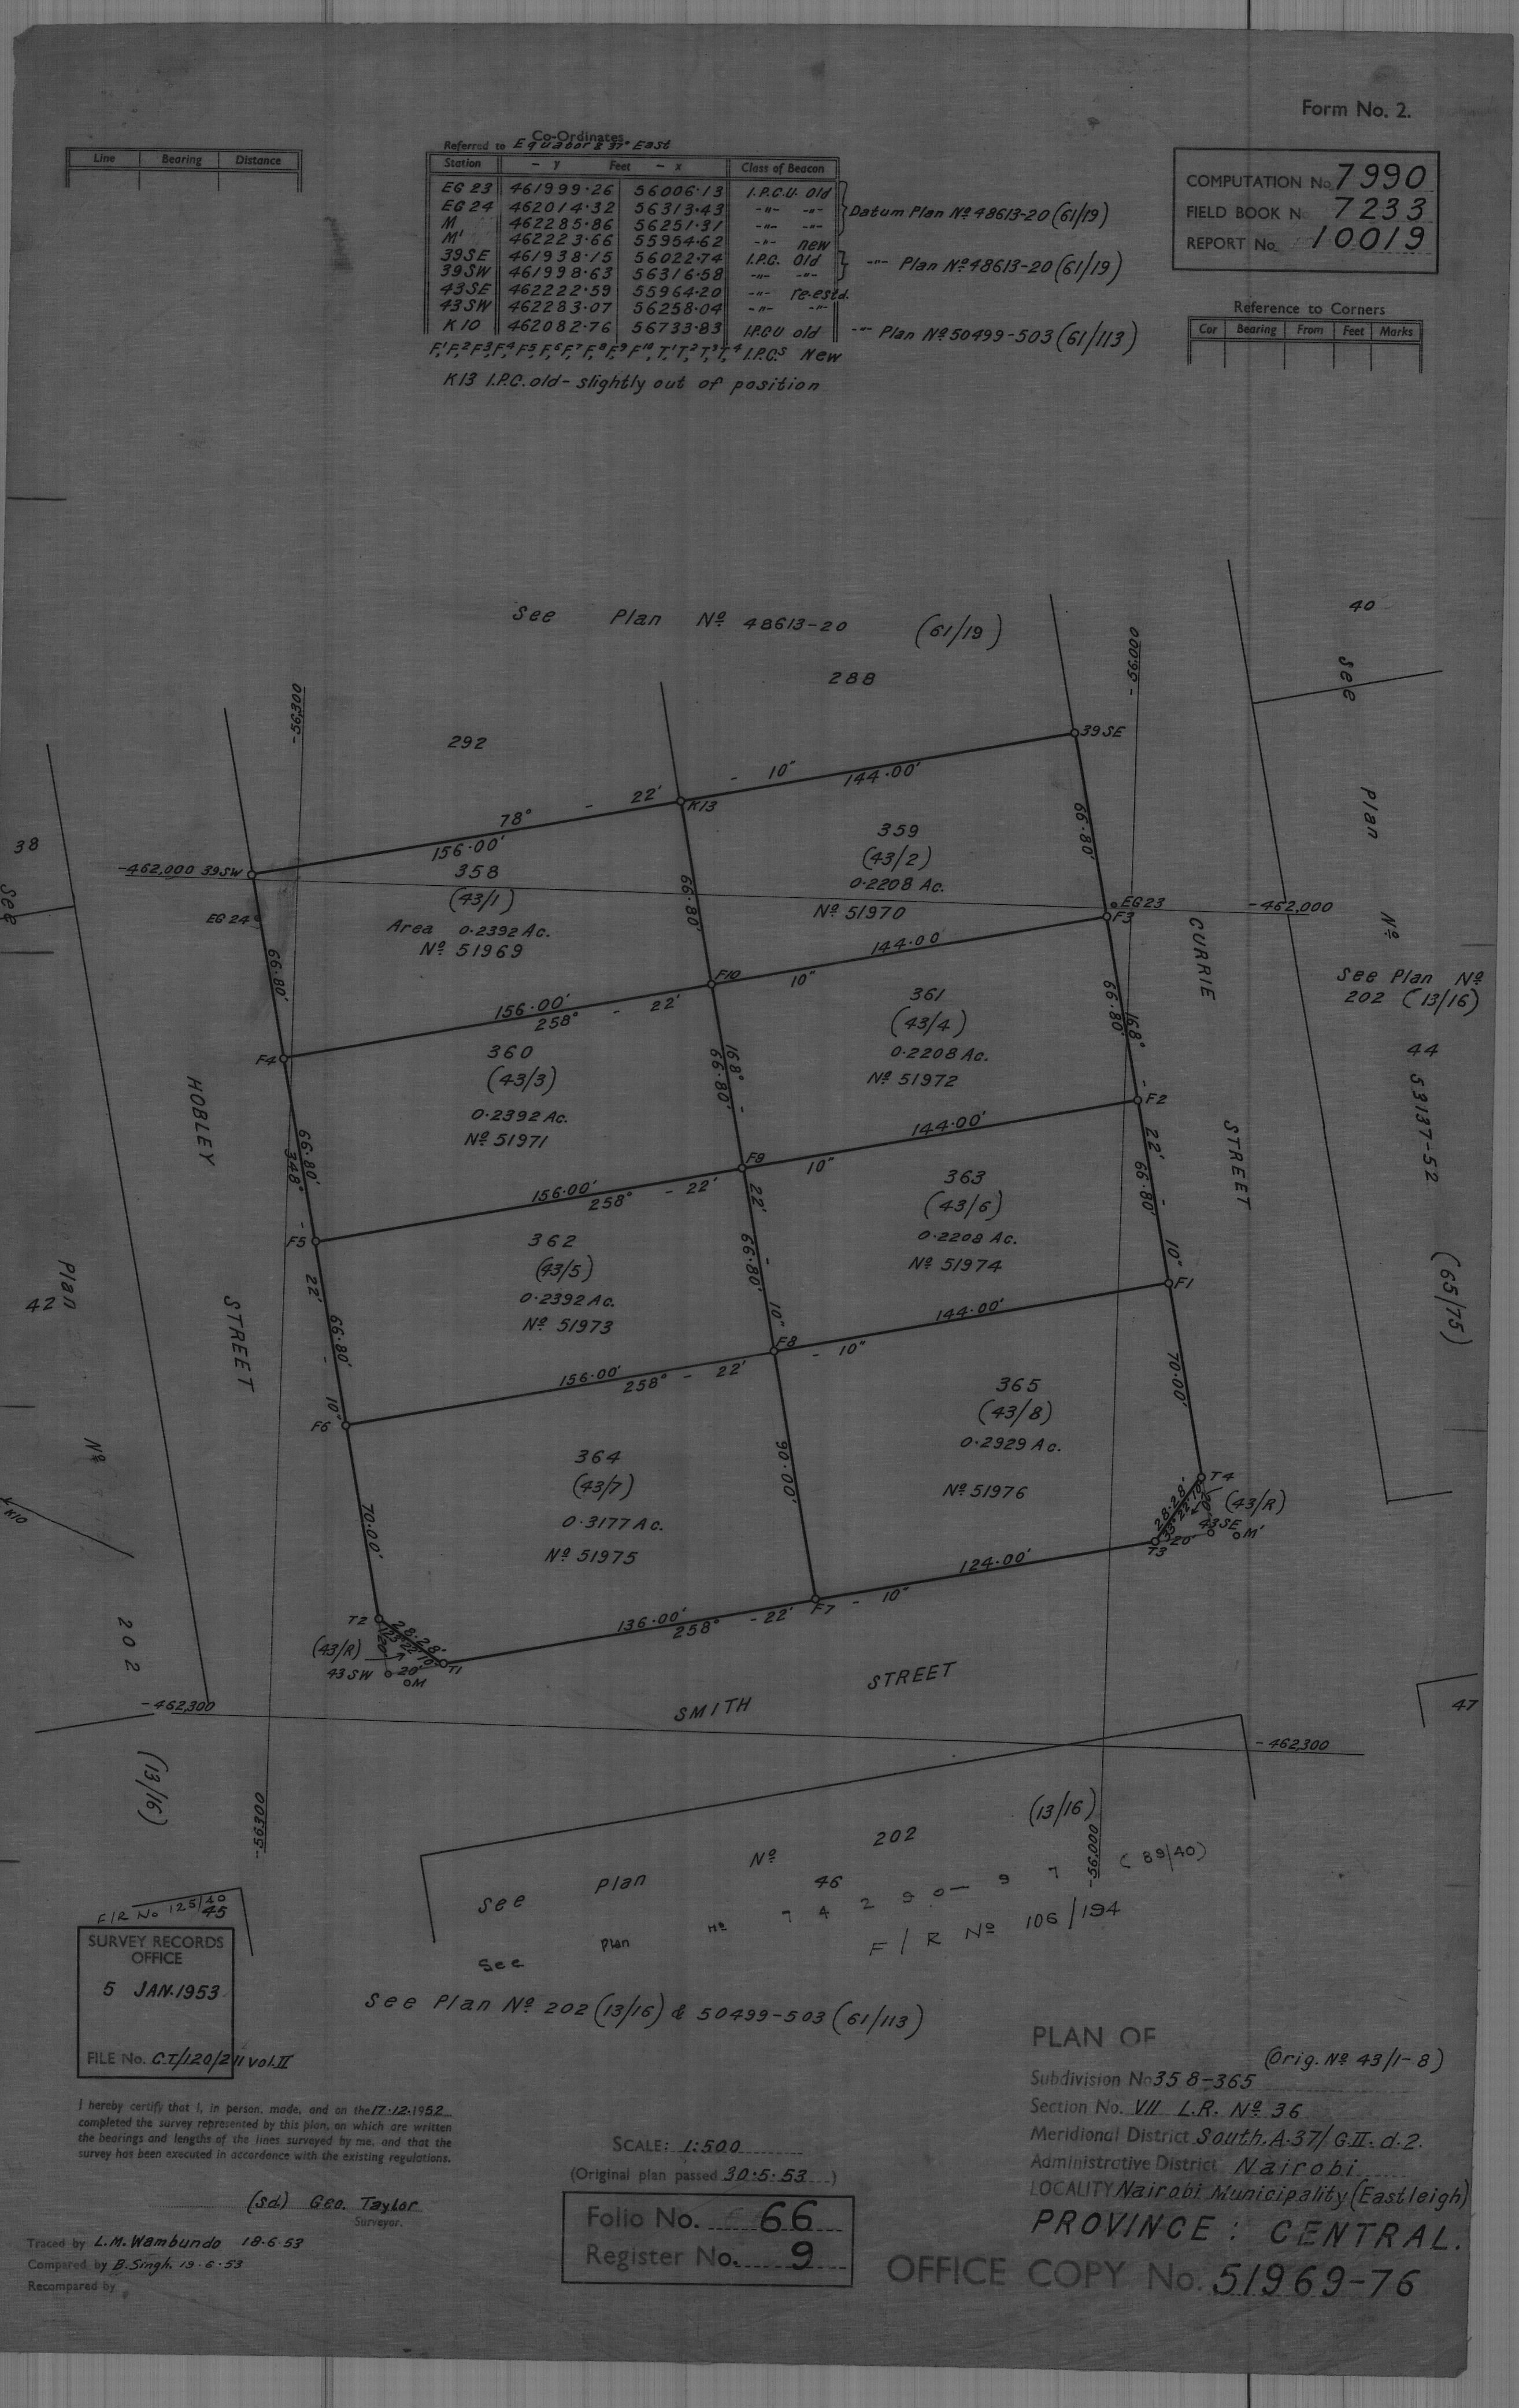 Form No. 2.
Line Bearing Distance
Co-Ordinates
Referred to Equator & 37° East
Station - y Feet - x Class of Beacon
EG 23 461999.26 56006.13 I.P.C.U. Old
EG 24 462014.32 56313.43 -"- -"-
Datum Plan Nº 48613-20 (61/19)
M 462285.86 56251.31 -"- -"-
M' 462223.66 55954.62 -"- new
39SE 461938.15 56022.74 I.P.C. Old
-"- Plan Nº 48613-20 (61/19)
39SW 461998.63 56316.58 -"- -"-
43SE 462222.59 55964.20 -"- re-estd.
43SW 462283.07 56258.04 -"- -"-
K10 462082.76 56733.83 I.P.C.U old -"- Plan Nº 50499-503 (61/113)
F1, F2, F3, F4, F5, F6, F7, F8, F9, F10, T1, T2, T3, T4 I.P.C.s New
K13 I.P.C. old - slightly out of position
COMPUTATION No. 7990
FIELD BOOK No 7233
REPORT No. 10019
Reference to Corners
Cor Bearing From Feet Marks
See Plan Nº 48613-20 (61/19)
288
292
40
-56300
-56,000
39SE
78° - 22' - 10"
156.00'
144.00'
K13
38
See
-462,000 39SW
EG 24
358
(43/1)
Area 0.2392 Ac.
Nº 51969
359
(43/2)
0.2208 Ac.
Nº 51970
66.80'
66.80'
66.80'
EG23
F3
-462,000
144.00
F10
10"
156.00'
258° - 22'
F4
360
(43/3)
0.2392 Ac.
Nº 51971
361
(43/4)
0.2208 Ac.
Nº 51972
66.80'
168° -
66.80'
348° -
66.80'
168° -
F2
144.00'
F9
10"
156.00'
258° - 22'
F5
362
(43/5)
0.2392 Ac.
Nº 51973
363
(43/6)
0.2208 Ac.
Nº 51974
22' - 10"
66.80'
22' - 10"
66.80'
22' - 10"
66.80'
F1
144.00'
F8
- 10"
156.00'
258° - 22'
F6
364
(43/7)
0.3177 Ac.
Nº 51975
365
(43/8)
0.2929 Ac.
Nº 51976
70.00'
90.00'
70.00'
T4
28.28'
33° 22' 10"
(43/R)
43SE
M'
20'
T3
124.00'
- 10"
F7
136.00'
258° - 22'
T2
28.28'
(43/R)
43SW
20'
T1
M
HOBLEY STREET
CURRIE STREET
SMITH STREET
See Plan Nº 53137-52 (65/75)
See Plan Nº
202 (13/16)
44
42
Plan Nº 202 (13/16)
K10
47
-462,300
-462,300
-56300
-56,000
See Plan Nº 202 (13/16)
46
See Plan Nº 74290-97 (89/40)
F/R Nº 106/194
See Plan Nº 202 (13/16) & 50499-503 (61/113)
F/R No 125/40
45
SURVEY RECORDS
OFFICE
5 JAN. 1953
FILE No. C.T/120/211 vol. II
I hereby certify that I, in person, made, and on the 17.12.1952
completed the survey represented by this plan, on which are written
the bearings and lengths of the lines surveyed by me, and that the
survey has been executed in accordance with the existing regulations.
(Sd) Geo. Taylor
Surveyor.
Traced by L.M. Wambundo 18.6.53
Compared by B. Singh. 19.6.53
Recompared by
SCALE: 1:500
(Original plan passed 30.5.53)
Folio No. 66
Register No. 9
PLAN OF
(Orig. Nº 43/1-8)
Subdivision No 358-365
Section No. VII L.R. Nº 36
Meridional District South.A.37/G.II.d.2.
Administrative District Nairobi
LOCALITY Nairobi Municipality (Eastleigh)
PROVINCE: CENTRAL.
OFFICE COPY No. 51969-76